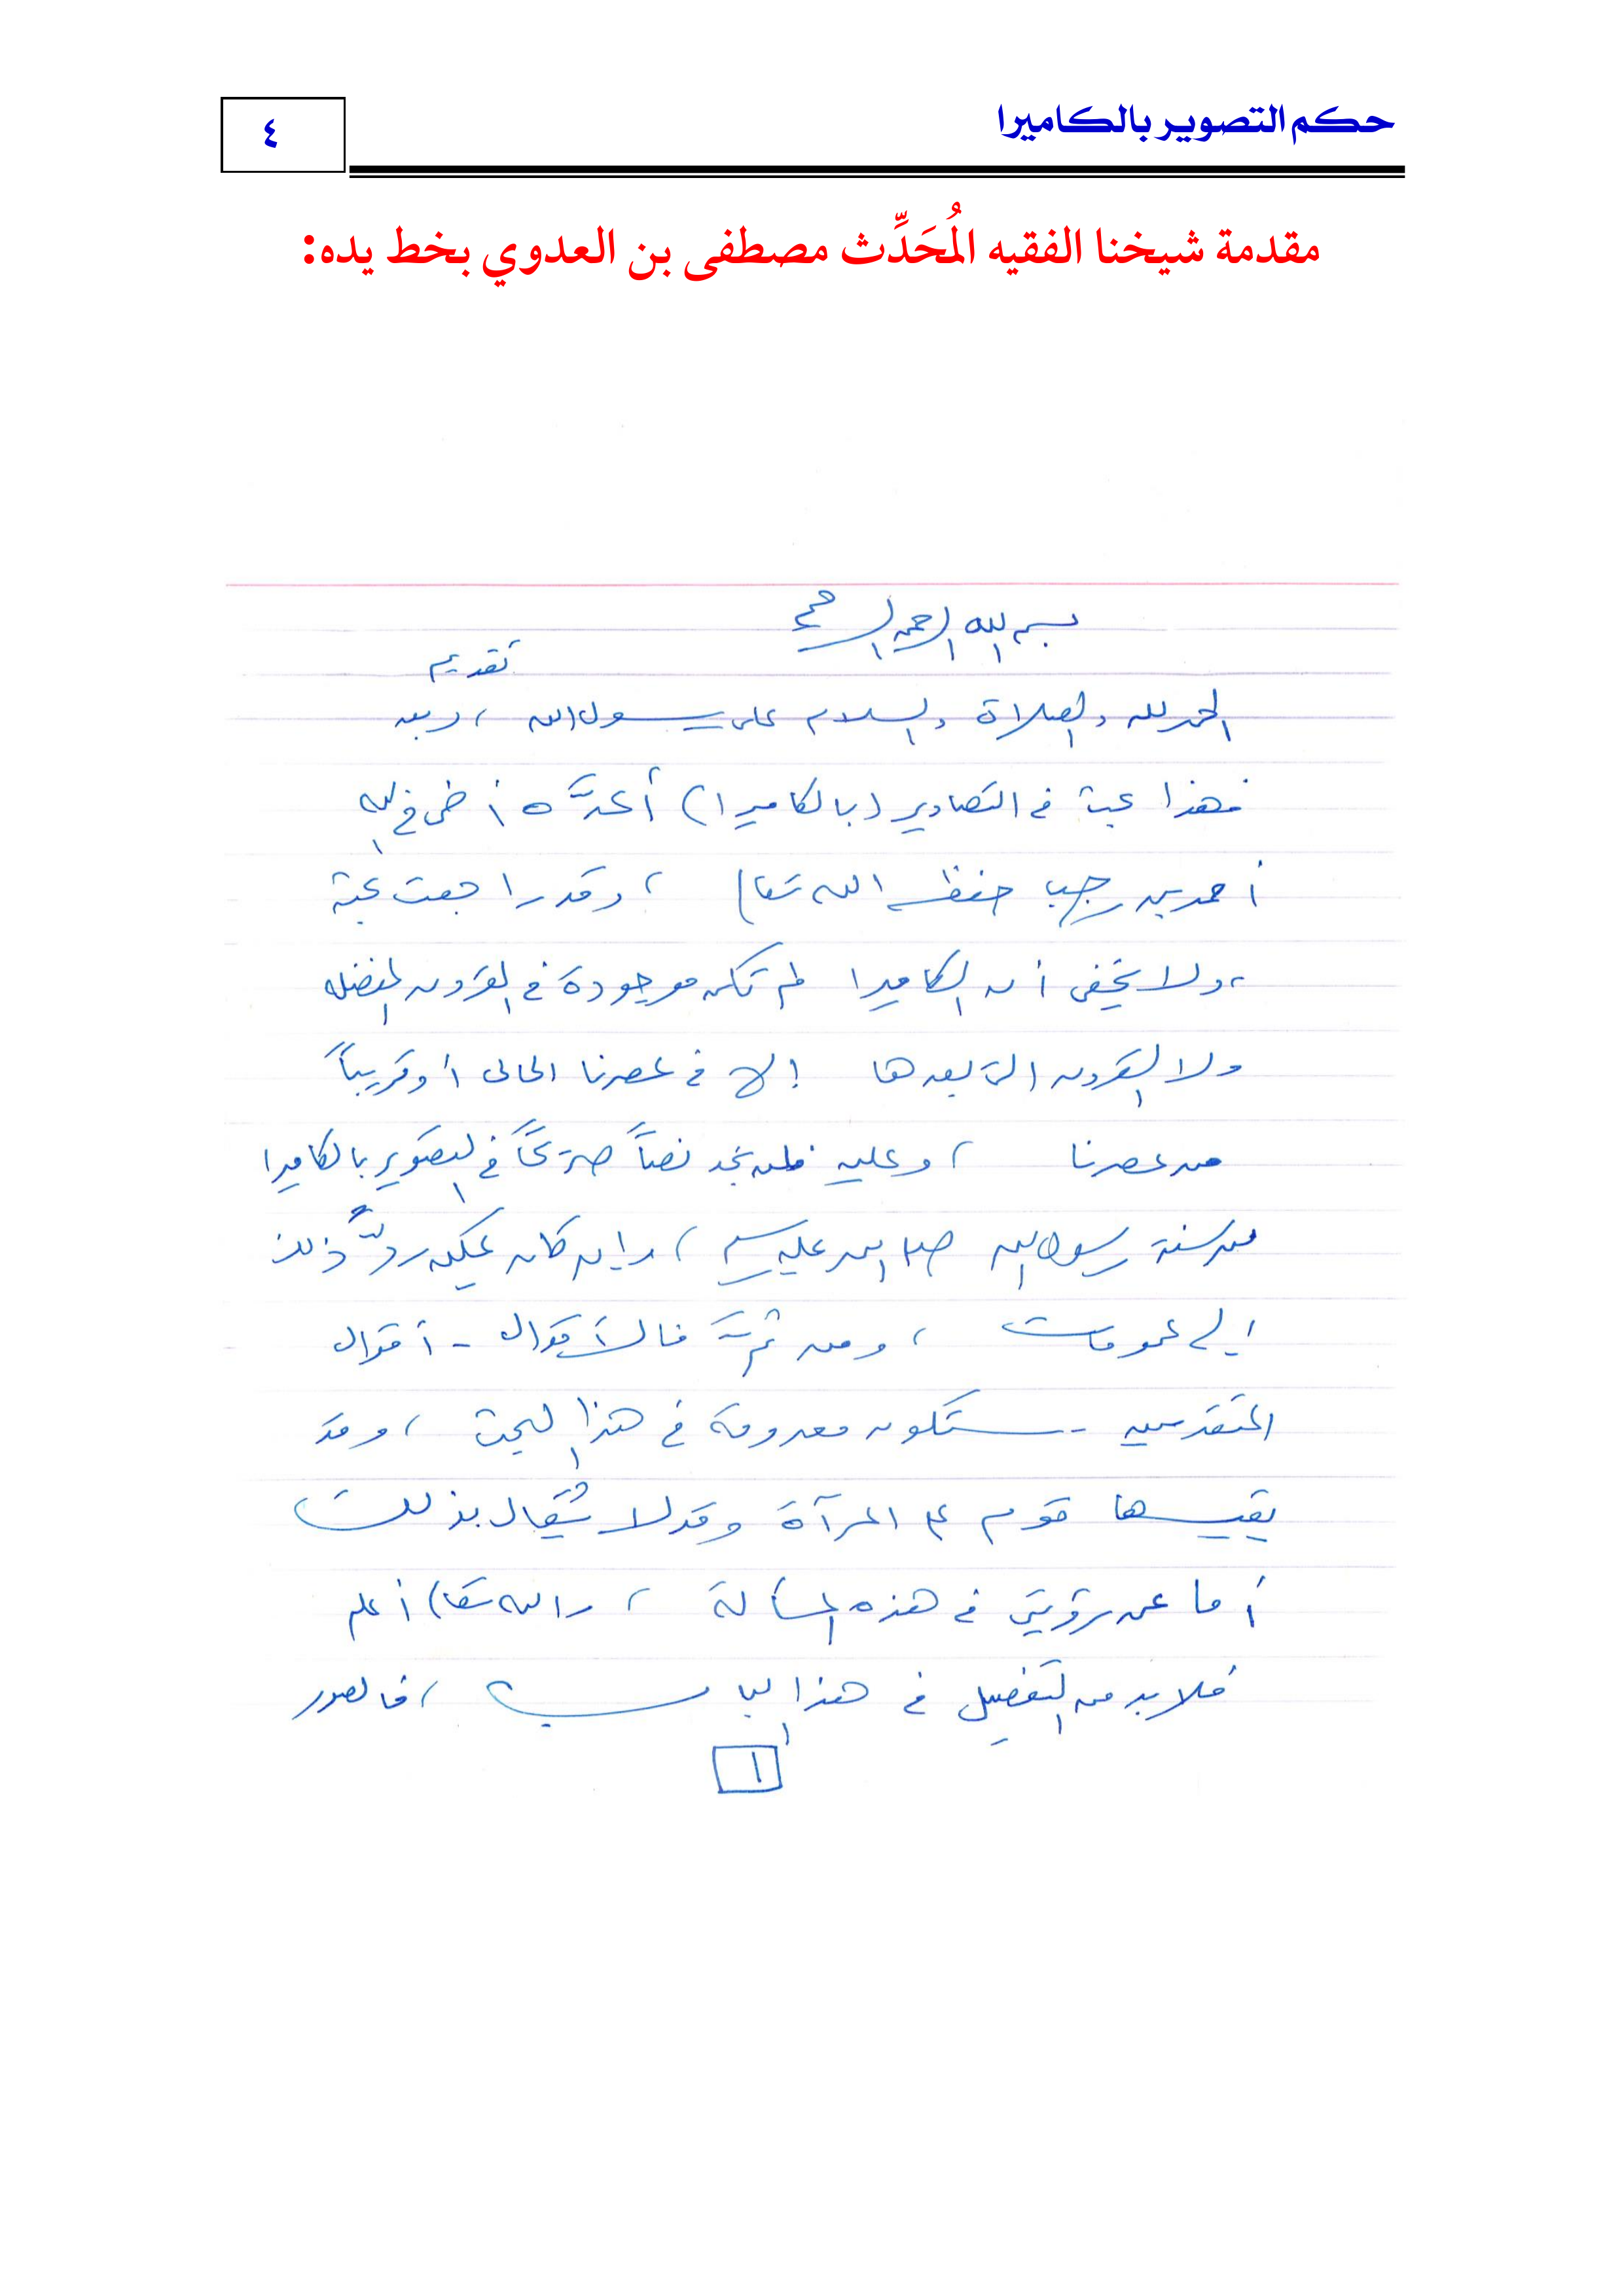 حكم التصوير بالكاميرا
٤
مقدمة شيخنا الفقيه المُحَدِّث مصطفى بن العدوي بخط يده:
بسم الله الرحمن الرحيم
تقديم
الحمد لله والصلاة والسلام على رسول الله ، وبعد
فهذا بحث في التصاوير (بالكاميرا) أعدَّه أخي في الله
أحمد بن رجب حفظه الله تعالى ، وقد راجعت بحثه
، ولا يخفى أن الكاميرا لم تكن موجودة في القرون المفضلة
ولا القرون التي بعدها إلا في عصرنا الحالي أو قريباً
من عصرنا ، وعليه فلن نجد نصاً صريحاً في التصوير بالكاميرا
من سنة رسول الله صلى الله عليه وسلم ، وإن كان يمكن ردُّ ذلك
إلى عمومات ، ومن ثمَّ فالأقوال - أقوال
المتقدمين - ستكون معدومة في هذا البحث ، وقد
يقيسها قوم على المرآة وقد لا يُقال بذلك
أما عن رؤيتي في هذه المسألة ، والله تعالى أعلم
فلابد من التفصيل في هذا الباب ، فالصور
١